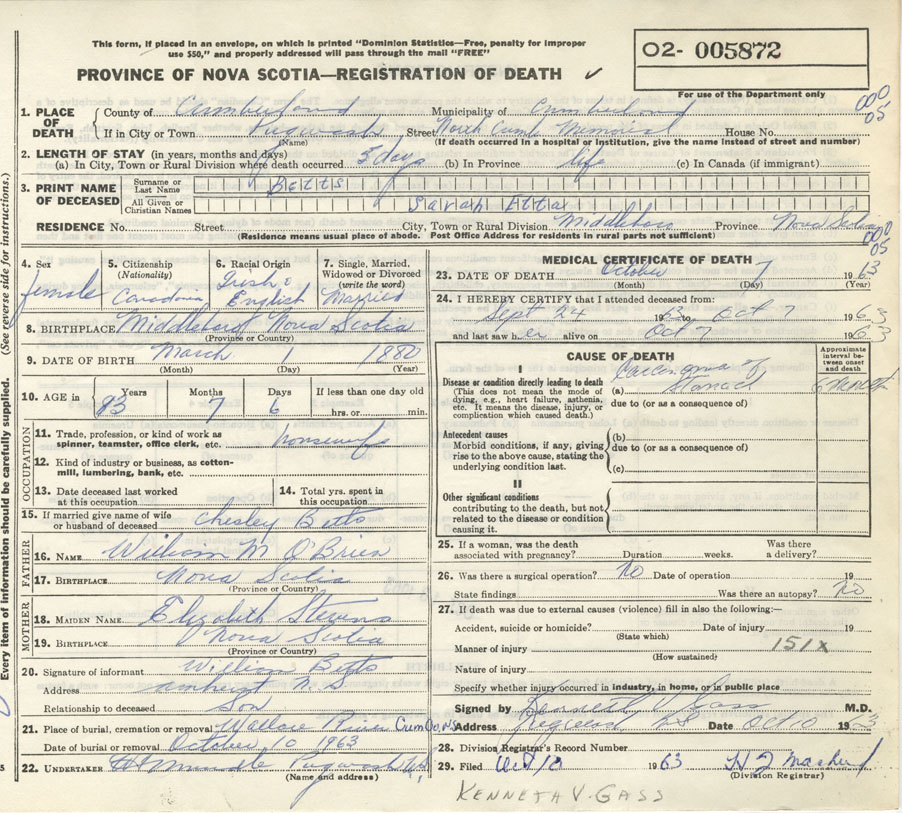 This form, if placed in an envelope, on which is printed "Dominion Statistics—Free, penalty for improper
use $50," and properly addressed will pass through the mail "FREE"
PROVINCE OF NOVA SCOTIA—REGISTRATION OF DEATH ✓
O2- 005872
For use of the Department only
000
05
1. PLACE OF DEATH
County of Cumberland Municipality of Cumberland
If in City or Town Pugwash Street North Cumb Memorial House No.
(Name) (If death occurred in a hospital or institution, give the name instead of street and number)
2. LENGTH OF STAY (in years, months and days)
(a) In City, Town or Rural Division where death occurred 5 days (b) In Province life (c) In Canada (if immigrant)
3. PRINT NAME OF DECEASED
Surname or Last Name Betts
All Given or Christian Names Sarah Etta
RESIDENCE No. Street City, Town or Rural Division Middleboro Province Nova Scotia
(Residence means usual place of abode. Post Office Address for residents in rural parts not sufficient)
000
05
Every item of information should be carefully supplied. (See reverse side for instructions.)
4. Sex female
5. Citizenship (Nationality) Canadian
6. Racial Origin Irish & English
7. Single, Married, Widowed or Divorced (write the word) Married
8. BIRTHPLACE Middleboro Nova Scotia
(Province or Country)
9. DATE OF BIRTH March 1 1880
(Month) (Day) (Year)
10. AGE in Years 83 Months 7 Days 6 If less than one day old hrs. or min.
OCCUPATION
11. Trade, profession, or kind of work as spinner, teamster, office clerk, etc. housewife
12. Kind of industry or business, as cotton-mill, lumbering, bank, etc.
13. Date deceased last worked at this occupation
14. Total yrs. spent in this occupation
15. If married give name of wife or husband of deceased Chesley Betts
FATHER
16. NAME William M O'Brien
17. BIRTHPLACE Nova Scotia
(Province or Country)
MOTHER
18. MAIDEN NAME Elizabeth Stevens
19. BIRTHPLACE Nova Scotia
(Province or Country)
20. Signature of informant William Betts
Address Amherst N.S
Relationship to deceased Son
21. Place of burial, cremation or removal Wallace River Cumb Co, NS
Date of burial or removal October 10 1963
22. UNDERTAKER Pugwash N.S.
(Name and address)
MEDICAL CERTIFICATE OF DEATH
23. DATE OF DEATH October 7 1963
(Month) (Day) (Year)
24. I HEREBY CERTIFY that I attended deceased from:
Sept 24 1963 to Oct 7 1963
and last saw her alive on Oct 7 1963
CAUSE OF DEATH
Approximate interval between onset and death
I
Disease or condition directly leading to death
(This does not mean the mode of dying, e.g., heart failure, asthenia, etc. It means the disease, injury, or complication which caused death.)
(a) Carcinoma of Stomach 6 months
due to (or as a consequence of)
Antecedent causes
Morbid conditions, if any, giving rise to the above cause, stating the underlying condition last.
(b)
due to (or as a consequence of)
(c)
II
Other significant conditions
contributing to the death, but not related to the disease or condition causing it.
25. If a woman, was the death associated with pregnancy? Duration weeks. Was there a delivery?
26. Was there a surgical operation? No Date of operation 19
State findings Was there an autopsy? No
27. If death was due to external causes (violence) fill in also the following:—
Accident, suicide or homicide? Date of injury 19
(State which)
Manner of injury 151x
(How sustained)
Nature of injury
Specify whether injury occurred in industry, in home, or in public place
Signed by Kenneth V Gass M.D.
Address NS Date Oct 10 1963
28. Division Registrar's Record Number
29. Filed Oct 10 1963
(Division Registrar)
KENNETH V. GASS